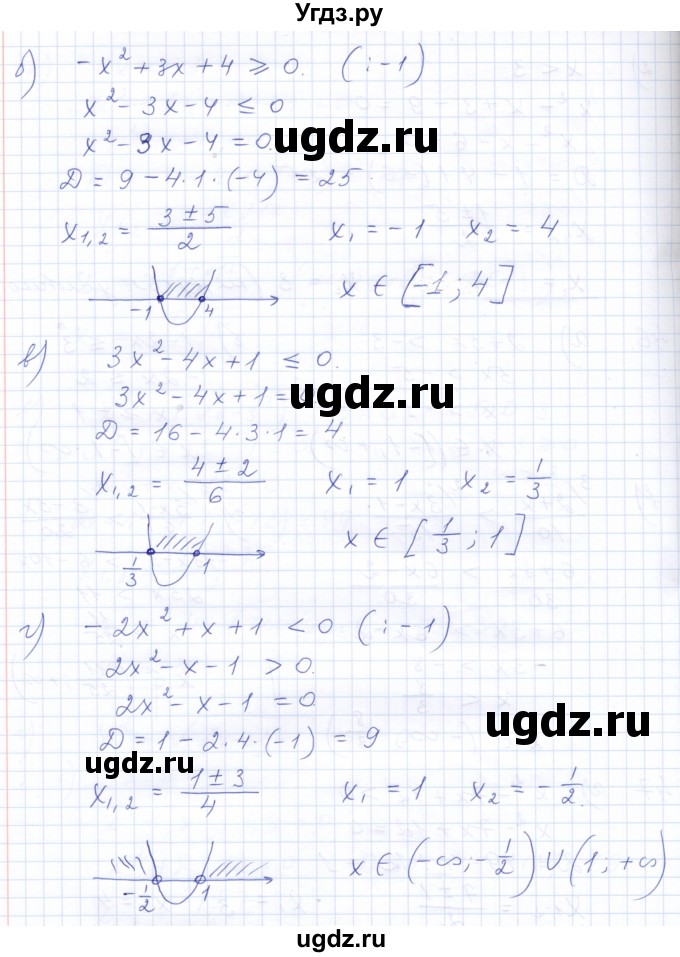 Угдз.ру
б) -x² + 3x + 4 ≥ 0. (: -1)
x² - 3x - 4 ≤ 0
x² - 3x - 4 = 0
ugdz.ru
D = 9 - 4·1·(-4) = 25.
x₁,₂ = (3 ± 5)/2 x₁ = -1 x₂ = 4
-1 4 x ∈ [-1; 4]
в) 3x² - 4x + 1 ≤ 0.
3x² - 4x + 1 =
ugdz.ru
D = 16 - 4·3·1 = 4
x₁,₂ = (4 ± 2)/6 x₁ = 1 x₂ = 1/3
1/3 1 x ∈ [1/3; 1]
г) -2x² + x + 1 < 0 (: -1)
2x² - x - 1 > 0.
2x² - x - 1 = 0
ugdz.ru
D = 1 - 2·4·(-1) = 9
ugdz.ru
x₁,₂ = (1 ± 3)/4 x₁ = 1 x₂ = -1/2.
-1/2 1 x ∈ (-∞; -1/2) ∪ (1; +∞)
ugdz.ru